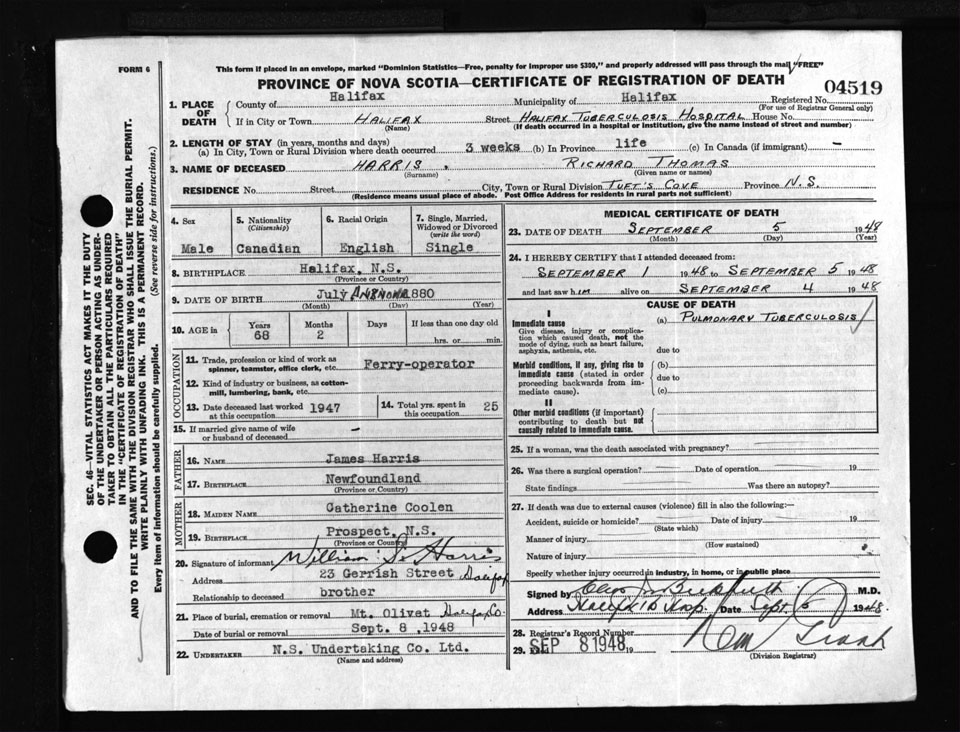 FORM 6
This form if placed in an envelope, marked "Dominion Statistics—Free, penalty for improper use $300," and properly addressed will pass through the mail "FREE"
PROVINCE OF NOVA SCOTIA—CERTIFICATE OF REGISTRATION OF DEATH
04519
1. PLACE OF DEATH
County of Halifax Municipality of Halifax Registered No.
(For use of Registrar General only)
If in City or Town HALIFAX Street HALIFAX TUBERCULOSIS HOSPITAL House No.
(Name) (If death occurred in a hospital or institution, give the name instead of street and number)
2. LENGTH OF STAY (in years, months and days)
(a) In City, Town or Rural Division where death occurred 3 weeks (b) In Province life (c) In Canada (if immigrant) —
3. NAME OF DECEASED HARRIS, RICHARD THOMAS
(Surname) (Given name or names)
RESIDENCE No. Street City, Town or Rural Division TUFT'S COVE Province N.S.
(Residence means usual place of abode. Post Office Address for residents in rural parts not sufficient)
4. Sex
Male
5. Nationality
(Citizenship)
Canadian
6. Racial Origin
English
7. Single, Married, Widowed or Divorced
(write the word)
Single
8. BIRTHPLACE Halifax, N.S.
(Province or Country)
9. DATE OF BIRTH July 1880
(Month) (Day) (Year)
10. AGE in
Years Months Days If less than one day old
68 2 hrs. or min.
OCCUPATION
11. Trade, profession or kind of work as spinner, teamster, office clerk, etc. Ferry-operator
12. Kind of industry or business, as cotton-mill, lumbering, bank, etc.
13. Date deceased last worked at this occupation 1947
14. Total yrs. spent in this occupation 25
15. If married give name of wife or husband of deceased —
FATHER
16. NAME James Harris
17. BIRTHPLACE Newfoundland
(Province or Country)
MOTHER
18. MAIDEN NAME Catherine Coolen
19. BIRTHPLACE Prospect, N.S.
(Province or Country)
20. Signature of informant William S. Harris
Address 23 Gerrish Street Halifax
Relationship to deceased brother
21. Place of burial, cremation or removal Mt. Olivet Halifax Co.
Date of burial or removal Sept. 8, 1948
22. UNDERTAKER N.S. Undertaking Co. Ltd.
(Name and address)
MEDICAL CERTIFICATE OF DEATH
23. DATE OF DEATH SEPTEMBER 5 1948
(Month) (Day) (Year)
24. I HEREBY CERTIFY that I attended deceased from:
SEPTEMBER 1 1948 to SEPTEMBER 5 1948
and last saw him alive on SEPTEMBER 4 1948
CAUSE OF DEATH
I
Immediate cause (a) PULMONARY TUBERCULOSIS
Give disease, injury or complication which caused death, not the mode of dying, such as heart failure, asphyxia, asthenia, etc.
due to
Morbid conditions, if any, giving rise to immediate cause (stated in order proceeding backwards from immediate cause).
(b)
due to
(c)
II
Other morbid conditions (if important) contributing to death but not causally related to immediate cause.
25. If a woman, was the death associated with pregnancy?
26. Was there a surgical operation? Date of operation 19
State findings Was there an autopsy?
27. If death was due to external causes (violence) fill in also the following:—
Accident, suicide or homicide? Date of injury 19
(State which)
Manner of injury
(How sustained)
Nature of injury
Specify whether injury occurred in industry, in home, or in public place
Signed by M.D.
Address Halifax TB Hosp. Date Sept. 5 1948
28. Registrar's Record Number
29. SEP 8 1948 19
(Division Registrar)
SEC. 46—VITAL STATISTICS ACT MAKES IT THE DUTY
OF THE UNDERTAKER OR PERSON ACTING AS UNDER-
TAKER TO OBTAIN ALL THE PARTICULARS REQUIRED
IN THE "CERTIFICATE OF REGISTRATION OF DEATH"
AND TO FILE THE SAME WITH THE DIVISION REGISTRAR WHO SHALL ISSUE THE BURIAL PERMIT.
WRITE PLAINLY WITH UNFADING INK. THIS IS A PERMANENT RECORD.
Every item of information should be carefully supplied. (See reverse side for instructions.)